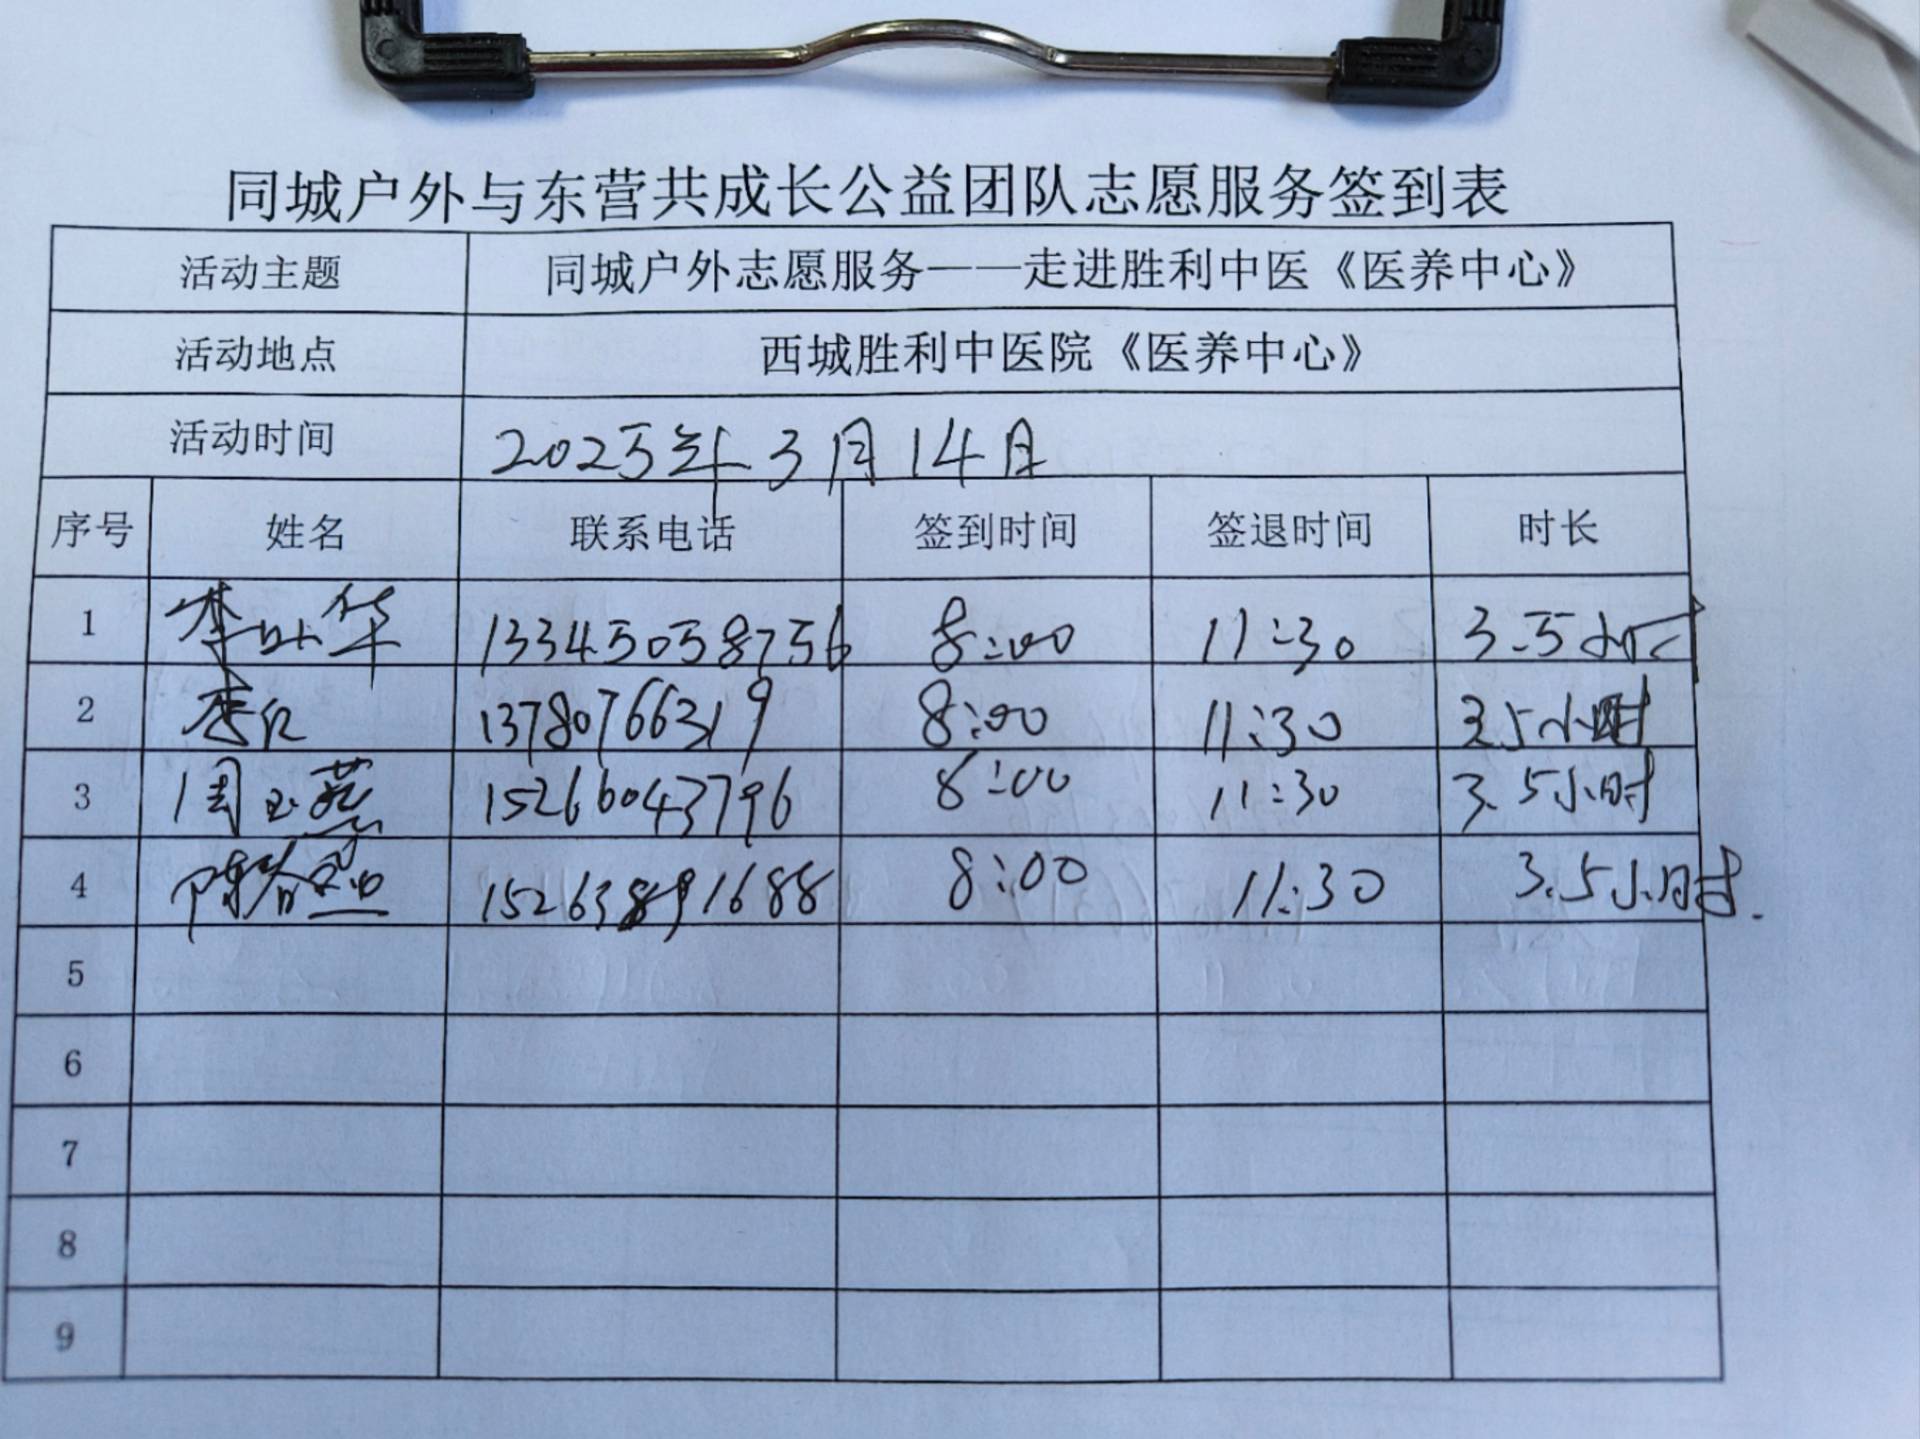 同城户外与东营共成长公益团队志愿服务签到表
活动主题 同城户外志愿服务——走进胜利中医《医养中心》
活动地点 西城胜利中医院《医养中心》
活动时间 2025年3月14日
序号 姓名 联系电话 签到时间 签退时间 时长
1 李 华 13345058756 8:00 11:30 3.5小时
2 李红 13780766319 8:00 11:30 3.5小时
3 周玉燕 15266043796 8:00 11:30 3.5小时
4 陈春 8:00 11:30 3.5小时.
5
6
7
8
9